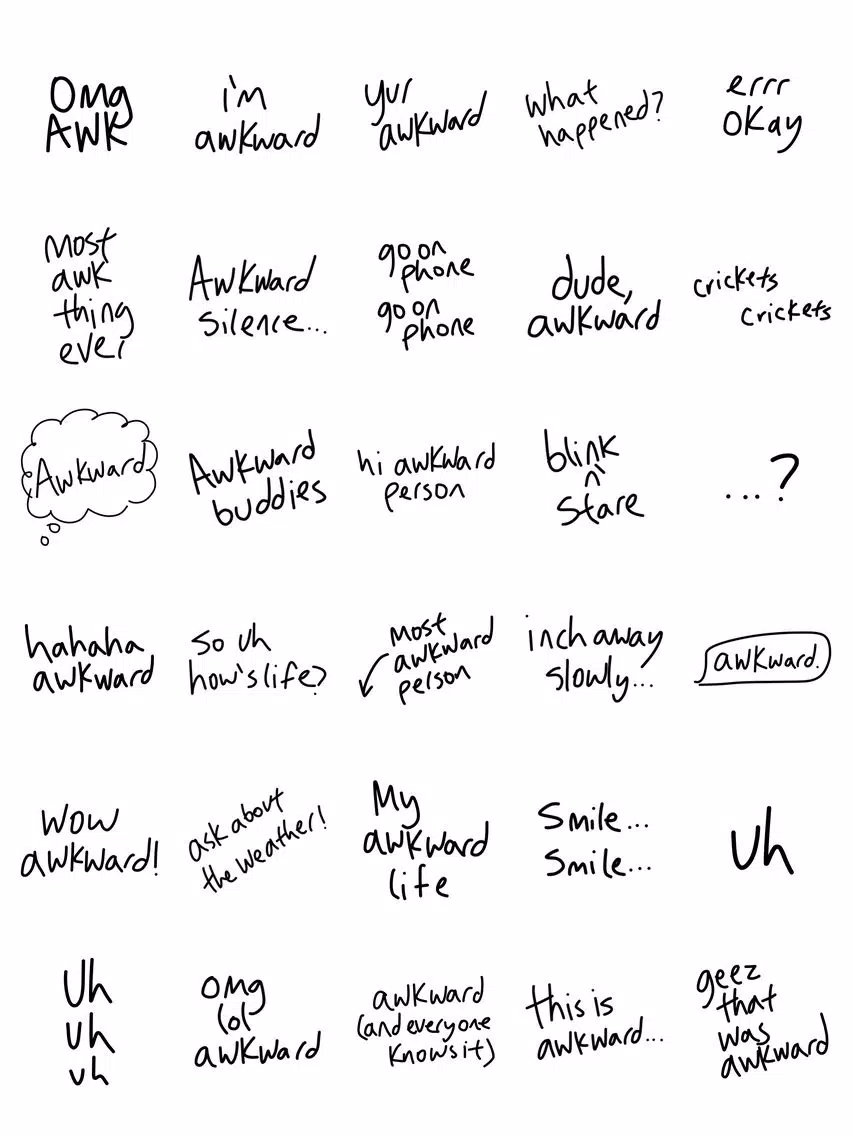 Omg
AWK
i'm
awkward
yur
awkward
what
happened?
errr
okay
Most
awk
thing
ever
Awkward
silence...
go on
phone
go on
phone
dude,
awkward
crickets
crickets
Awkward
Awkward
buddies
hi awkward
person
blink
^
stare
...?
hahaha
awkward
so uh
how's life?
Most
awkward
person
inch away
slowly...
awkward.
Wow
awkward!
ask about
the weather!
My
awkward
life
Smile...
Smile...
Uh
Uh
uh
uh
OMg
lol
awkward
awkward
(and everyone
knows it)
this is
awkward...
geez
that
was
awkward